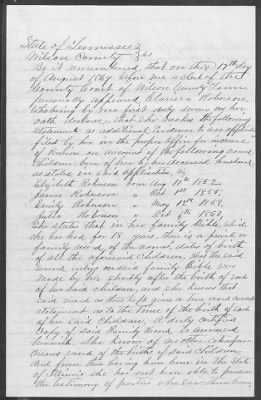 State of Tennessee
Wilson County } ss
Be it remembered that on this 17th day
of August 1867 before me a clerk of the
County Court of Wilson County Tenn
personally appeared Clarissa Robinson
who being by me first duly sworn on her
oath states that she makes the following
statement as additional evidence to her application
filed by her in the Pension Office for increase
of Pension on account of the following named
Children born of her by her deceased husband
as stated in said application, Viz
Elizabeth Robinson born Aug 18th 1852
James Robinson " 1st 1855,
Emily Robinson " May 18th 1858,
Julia Robinson " Oct 9th 1860,
She states that in her family Bible, which
she has had for 18 years, there is a
family record of the names, dates of birth
of all the aforesaid Children, that the said
record entry on said family Bible was
made by her shortly after the birth of each
of her said children, and she knows that
said record as thus kept gives a true and correct
statement as to the time of the birth of each
of her said Children. A duly certified
Copy of said Family Record is annexed
herewith. She knows of no other
record of the births of said Children
And from their having been born in the State
of Illinois she has not been able to procure
the testimony of parties who saw them born